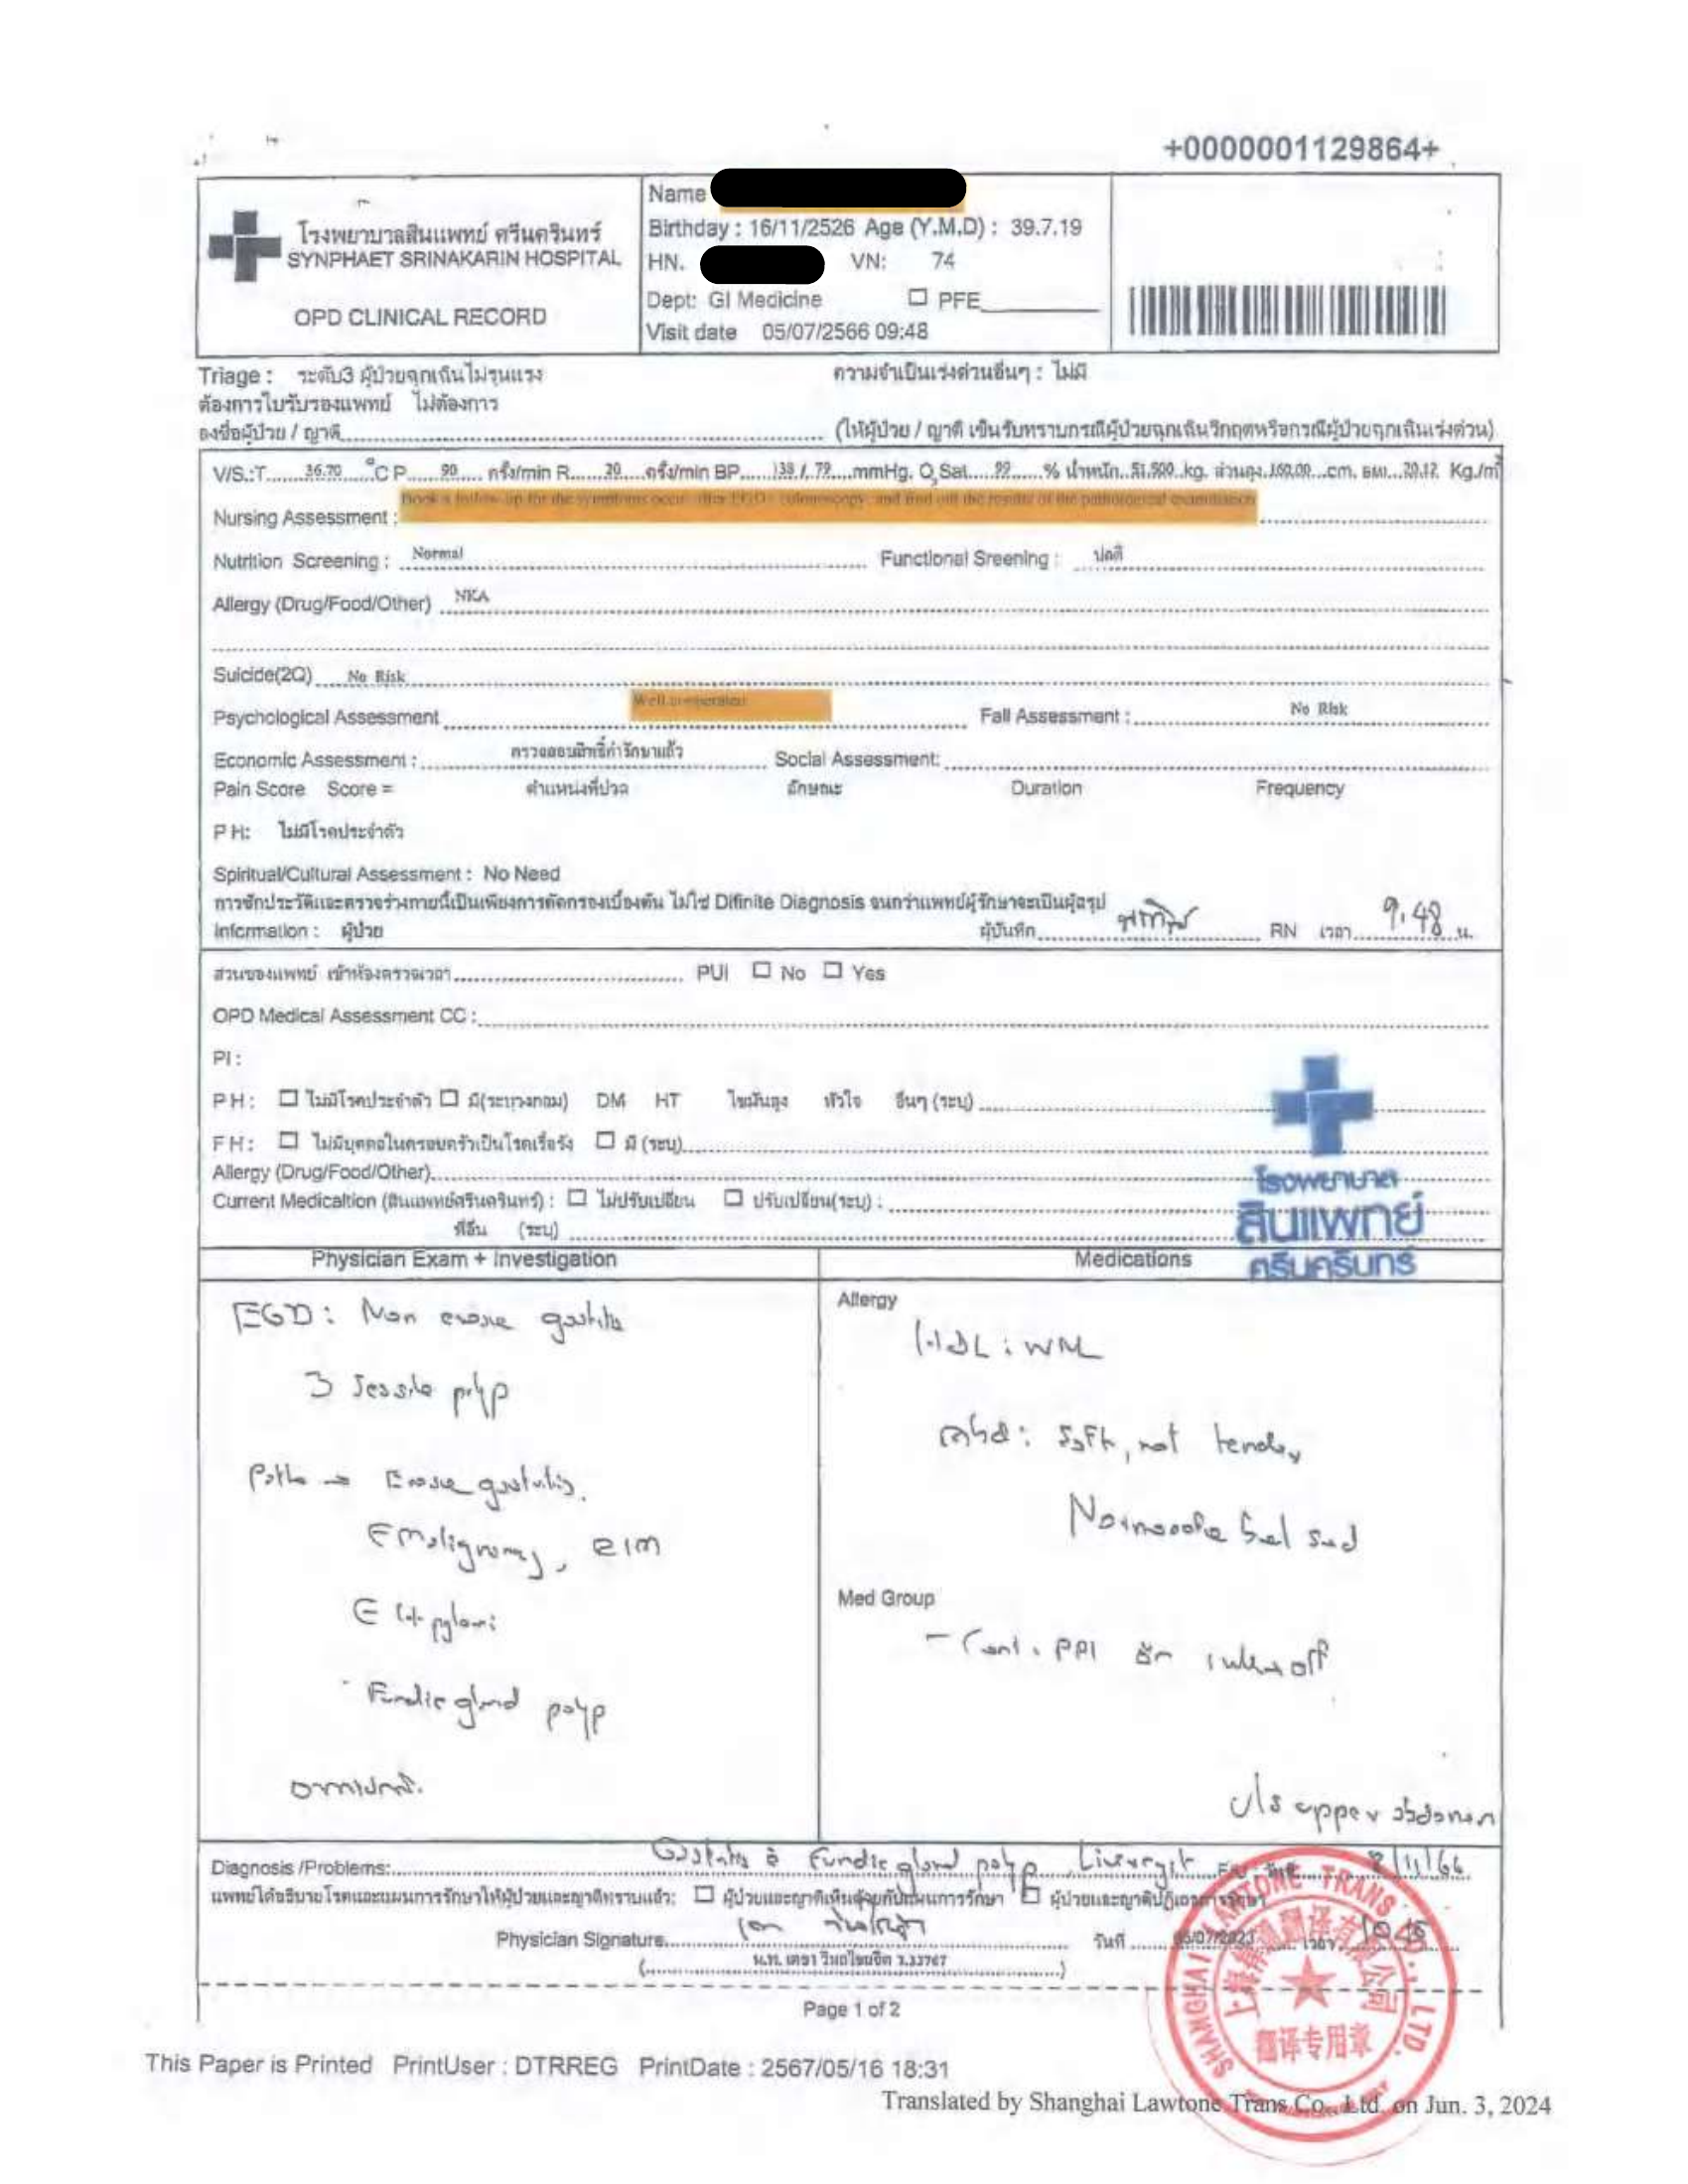 +0000001129864+
โรงพยาบาลสินแพทย์ ศรีนครินทร์
SYNPHAET SRINAKARIN HOSPITAL
OPD CLINICAL RECORD
Name
Birthday : 16/11/2526 Age (Y.M.D) : 39.7.19
HN. VN: 74
Dept: GI Medicine ☐ PFE
Visit date 05/07/2566 09:48
Triage : ระดับ3 ผู้ป่วยฉุกเฉินไม่รุนแรง ความจำเป็นเร่งด่วนอื่นๆ : ไม่มี
ต้องการใบรับรองแพทย์ ไม่ต้องการ
ลงชื่อผู้ป่วย / ญาติ (ให้ผู้ป่วย / ญาติ เซ็นรับทราบกรณีผู้ป่วยฉุกเฉินวิกฤตหรือกรณีผู้ป่วยฉุกเฉินเร่งด่วน)
V/S.:T 36.70 °C P 90 ครั้ง/min R 20 ครั้ง/min BP 138 / 79 mmHg. O₂Sat 99 % น้ำหนัก 51.500 kg. ส่วนสูง 160.00 cm. BMI 20.12 Kg/m²
Nursing Assessment : Book a follow-up for the symptoms occur after EGD+ colonoscopy, and find out the results of the pathological examination
Nutrition Screening : Normal Functional Sreening : ปกติ
Allergy (Drug/Food/Other) NKA
Suicide(2Q) No Risk
Psychological Assessment Well Fall Assessment : No Risk
Economic Assessment : ตรวจสอบสิทธิ์ค่ารักษาแล้ว Social Assessment:
Pain Score Score = ตำแหน่งที่ปวด ลักษณะ Duration Frequency
P H: ไม่มีโรคประจำตัว
Spiritual/Cultural Assessment : No Need
การซักประวัติและตรวจร่างกายนี้เป็นเพียงการคัดกรองเบื้องต้น ไม่ใช่ Difinite Diagnosis จนกว่าแพทย์ผู้รักษาจะเป็นผู้สรุป
Information : ผู้ป่วย ผู้บันทึก RN เวลา 9.48 น.
ส่วนของแพทย์ เข้าห้องตรวจเวลา PUI ☐ No ☐ Yes
OPD Medical Assessment CC :
PI :
P H : ☐ ไม่มีโรคประจำตัว ☐ มี(ระบุวงกลม) DM HT ไขมันสูง หัวใจ อื่นๆ (ระบุ)
F H : ☐ ไม่มีบุคคลในครอบครัวเป็นโรคเรื้อรัง ☐ มี (ระบุ)
Allergy (Drug/Food/Other)
Current Medicaltion (สินแพทย์ศรีนครินทร์) : ☐ ไม่ปรับเปลี่ยน ☐ ปรับเปลี่ยน(ระบุ) :
ที่อื่น (ระบุ)
โรงพยาบาล
สินแพทย์
ศรีนครินทร์
Physician Exam + Investigation
EGD : Non erosive gastritis
3 Sessile polyp
Patho → Erosive gastritis.
malignancy, IM
H. pylori
Fundic gland polyp
อาการปกติ.
Medications
Allergy
soft, not tender
Normoactive bowel sound
Med Group
- Cont. PPI off
U/S upper abdomen
Diagnosis /Problems: Gastritis c̄ Fundic gland polyp 8/11/66
แพทย์ได้อธิบายโรคและแผนการรักษาให้ผู้ป่วยและญาติทราบแล้ว: ☐ ผู้ป่วยและญาติเห็นด้วยกับแผนการรักษา ☐ ผู้ป่วยและญาติปฏิเสธการรักษา
Physician Signature วันที่ 05/07/2023 เวลา 10.15
Page 1 of 2
SHANGHAI LAWTONE TRANS CO., LTD.
翻译专用章
This Paper is Printed PrintUser : DTRREG PrintDate : 2567/05/16 18:31
Translated by Shanghai Lawtone Trans Co., Ltd. on Jun. 3, 2024